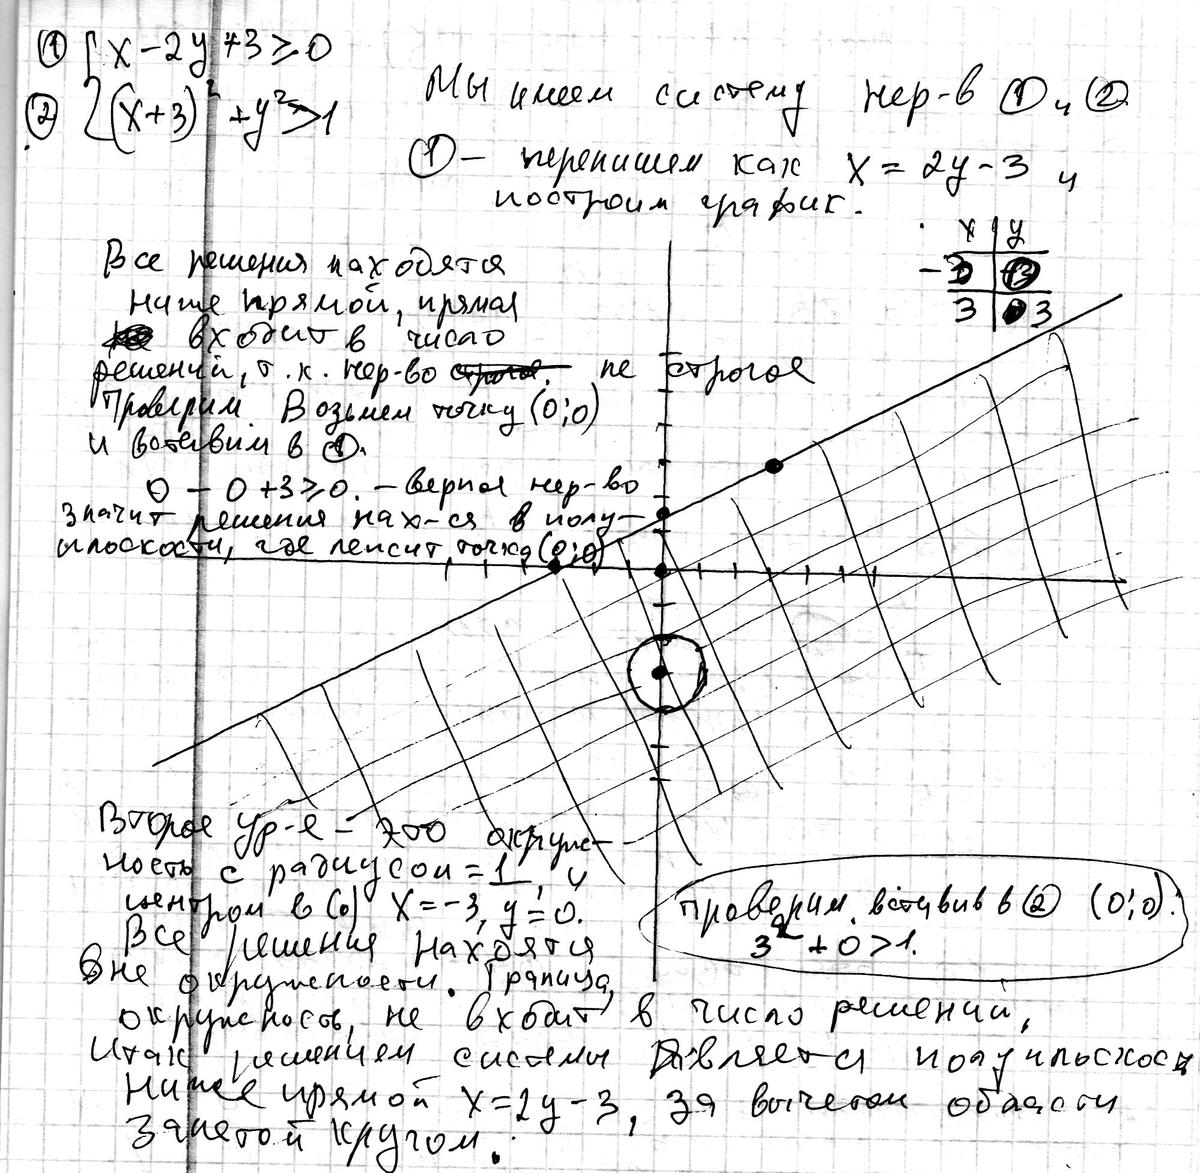 ① { x - 2y + 3 ≥ 0
② { (x+3)² + y² > 1
Мы имеем систему нер-в ① и ②
① – перепишем как x = 2y - 3 и
построим график.
x | y
-3 | 0
3 | 3
Все решения находятся
ниже прямой, прямая
входит в число
решений, т.к. нер-во строгое. не строгое
Проверим Возьмем точку (0;0)
и вставим в ①.
0 - 0 + 3 ≥ 0. – верное нер-во
Значит решения нах-ся в полу-
плоскости, где лежит точка (0;0)
Второе ур-е – это окруж-
ность с радиусом = 1, и
центром в (о) x = -3, y = 0.
Все решения находятся
вне окружности. Граница,
окружность, не входит в число решений,
Проверим, вставив в ② (0;0):
3² + 0 > 1.
Итак решением системы является полуплоскость
ниже прямой x = 2y - 3, за вычетом области
занятой кругом.